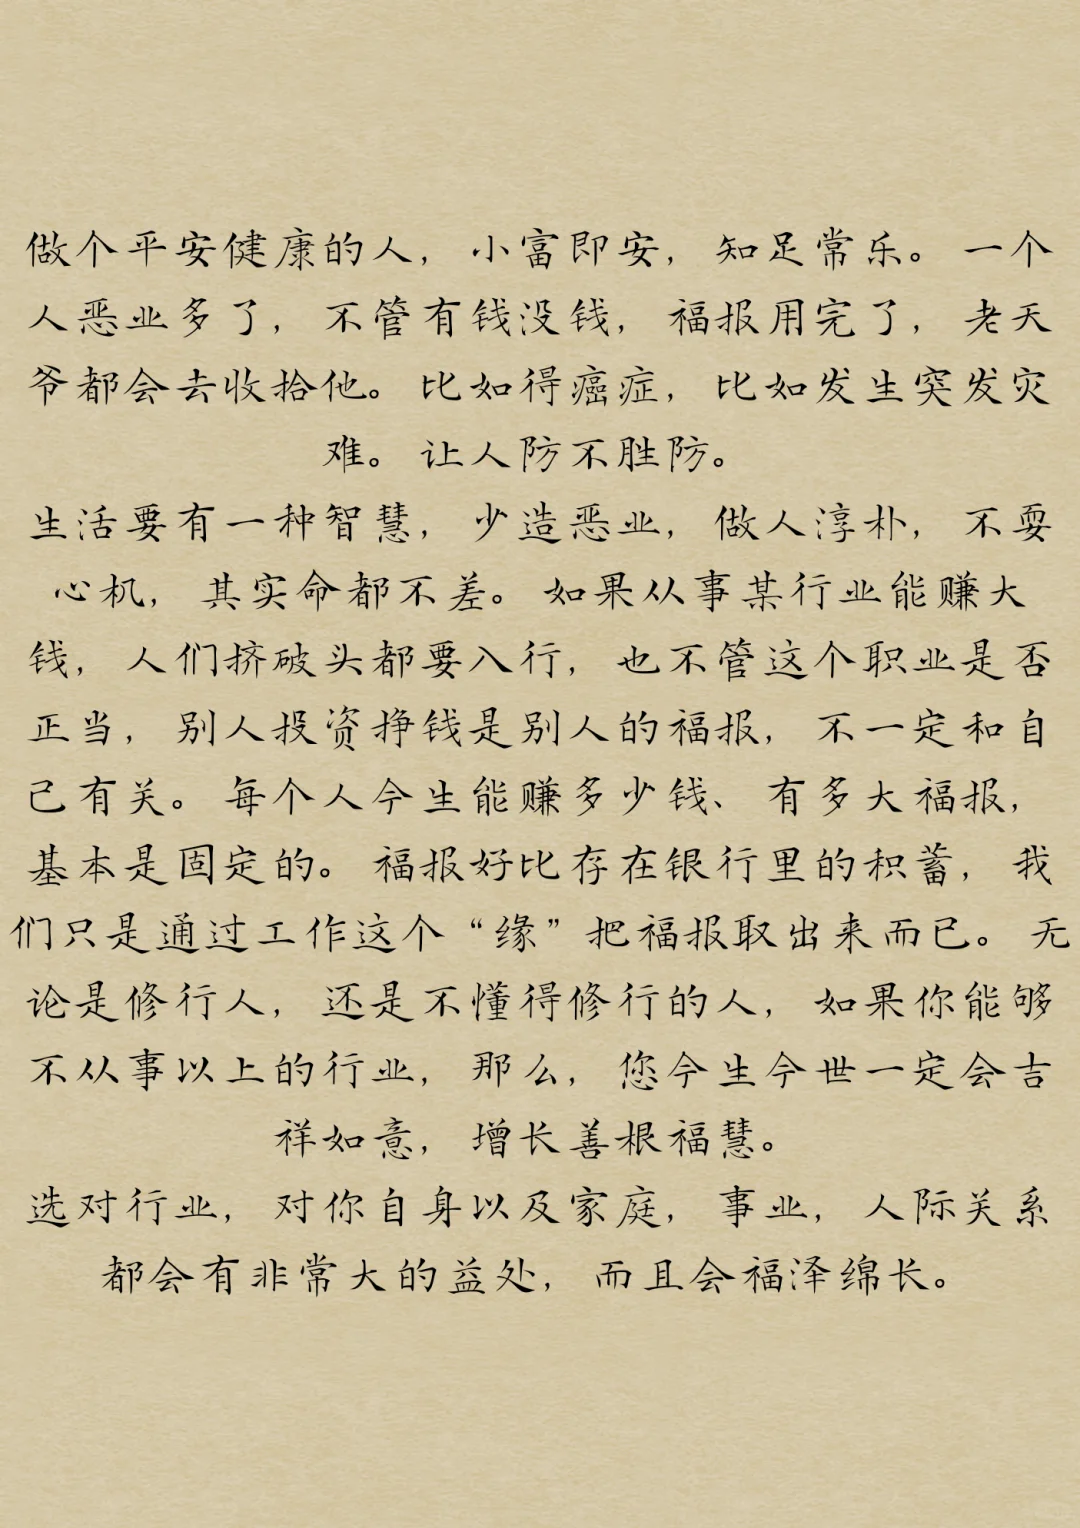 做个平安健康的人，小富即安，知足常乐。一个
人恶业多了，不管有钱没钱，福报用完了，老天
爷都会去收拾他。比如得癌症，比如发生突发灾
难。让人防不胜防。
生活要有一种智慧，少造恶业，做人淳朴，不耍
心机，其实命都不差。如果从事某行业能赚大
钱，人们挤破头都要入行，也不管这个职业是否
正当，别人投资挣钱是别人的福报，不一定和自
己有关。每个人今生能赚多少钱、有多大福报，
基本是固定的。福报好比存在银行里的积蓄，我
们只是通过工作这个“缘”把福报取出来而已。无
论是修行人，还是不懂得修行的人，如果你能够
不从事以上的行业，那么，您今生今世一定会吉
祥如意，增长善根福慧。
选对行业，对你自身以及家庭，事业，人际关系
都会有非常大的益处，而且会福泽绵长。